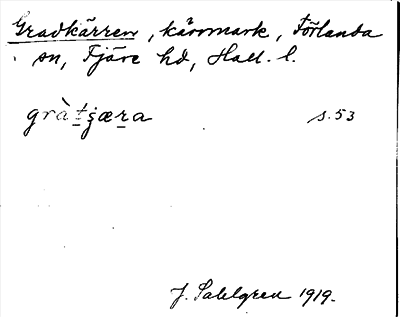 Gradkärren, kärrmark, Förlanda
sn, Fjäre hd, Hall. l.
gràtʂæra s. 53
J. Sahlgren 1919.